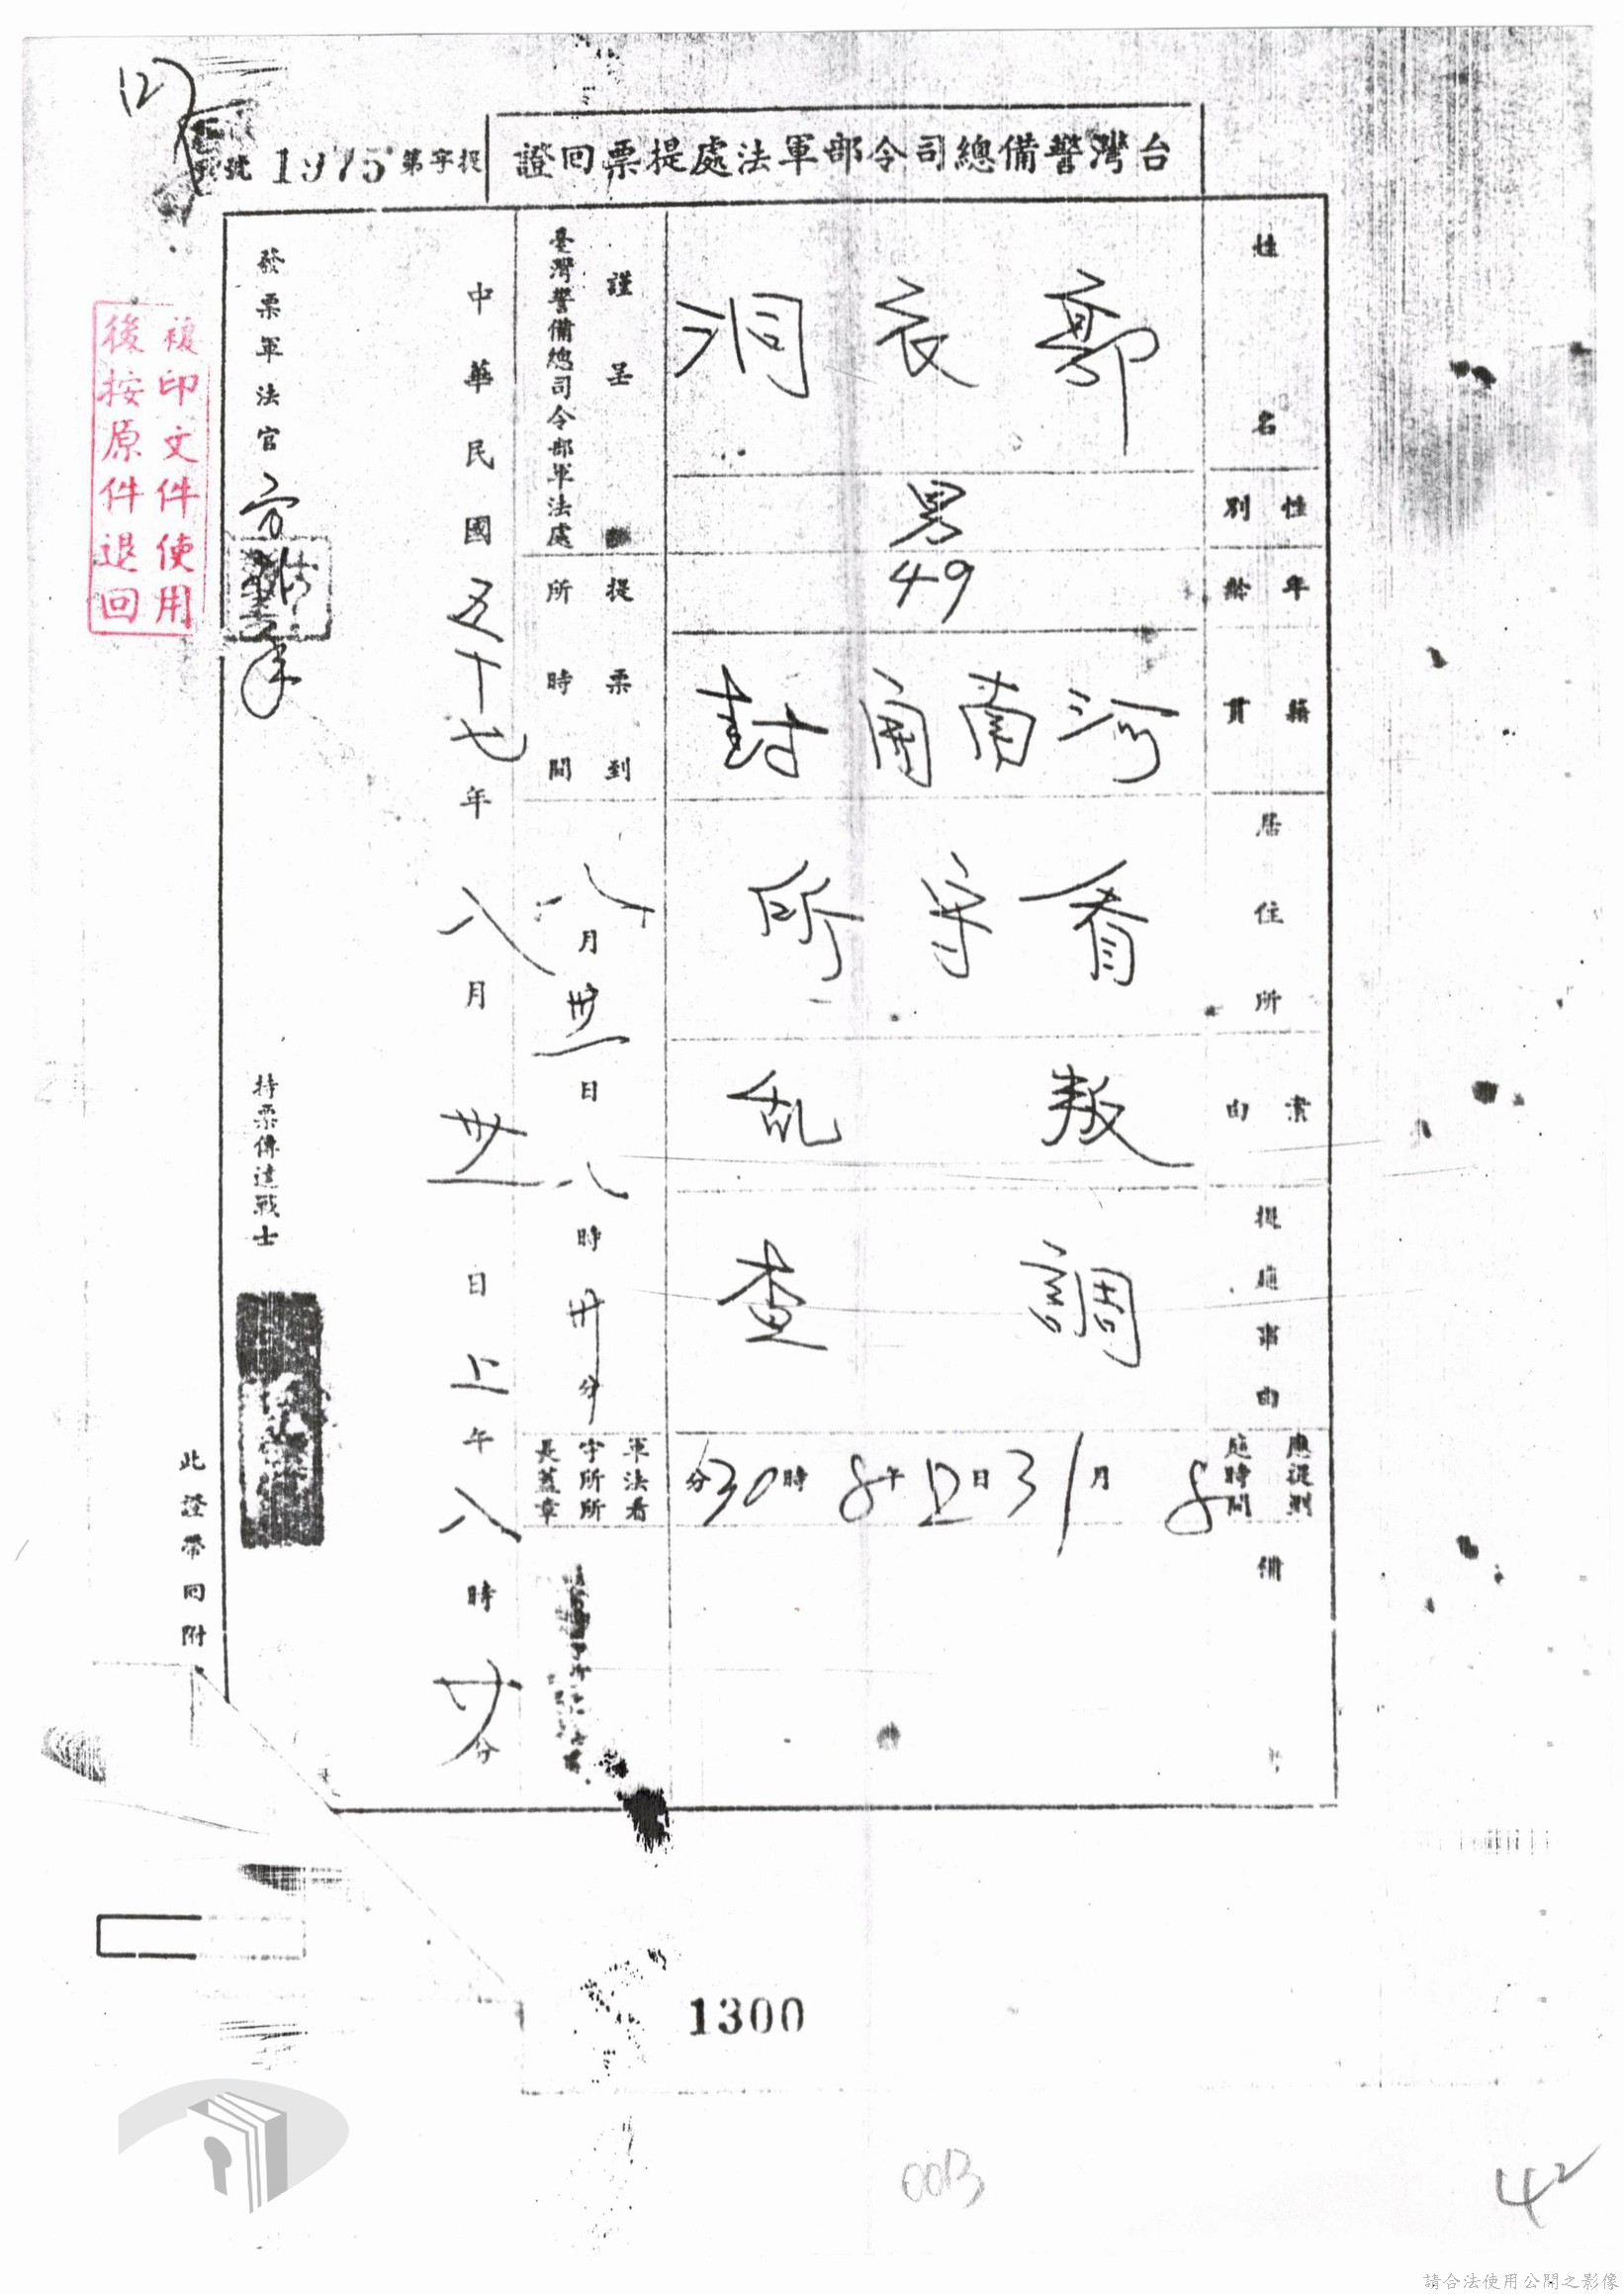 台灣警備總司令部軍法處提票回證
提字第1975號
姓名
郭衣洞
性別
男
年齡
49
籍貫
河南開封
居住所
看守所
案由
叛乱
提庭事由
調查
應提到庭時間
8月31日上午8時30分
備
謹呈
臺灣警備總司令部軍法處
提票到所時間
八月卅一日八時卅分
軍法看守所所長蓋章
中華民國五十七年八月卅一日上午八時廿分
發票軍法官
持票傳達戰士
此證帶回附
複印文件使用
後按原件退回
1300
0013
42
請合法使用公開之影像